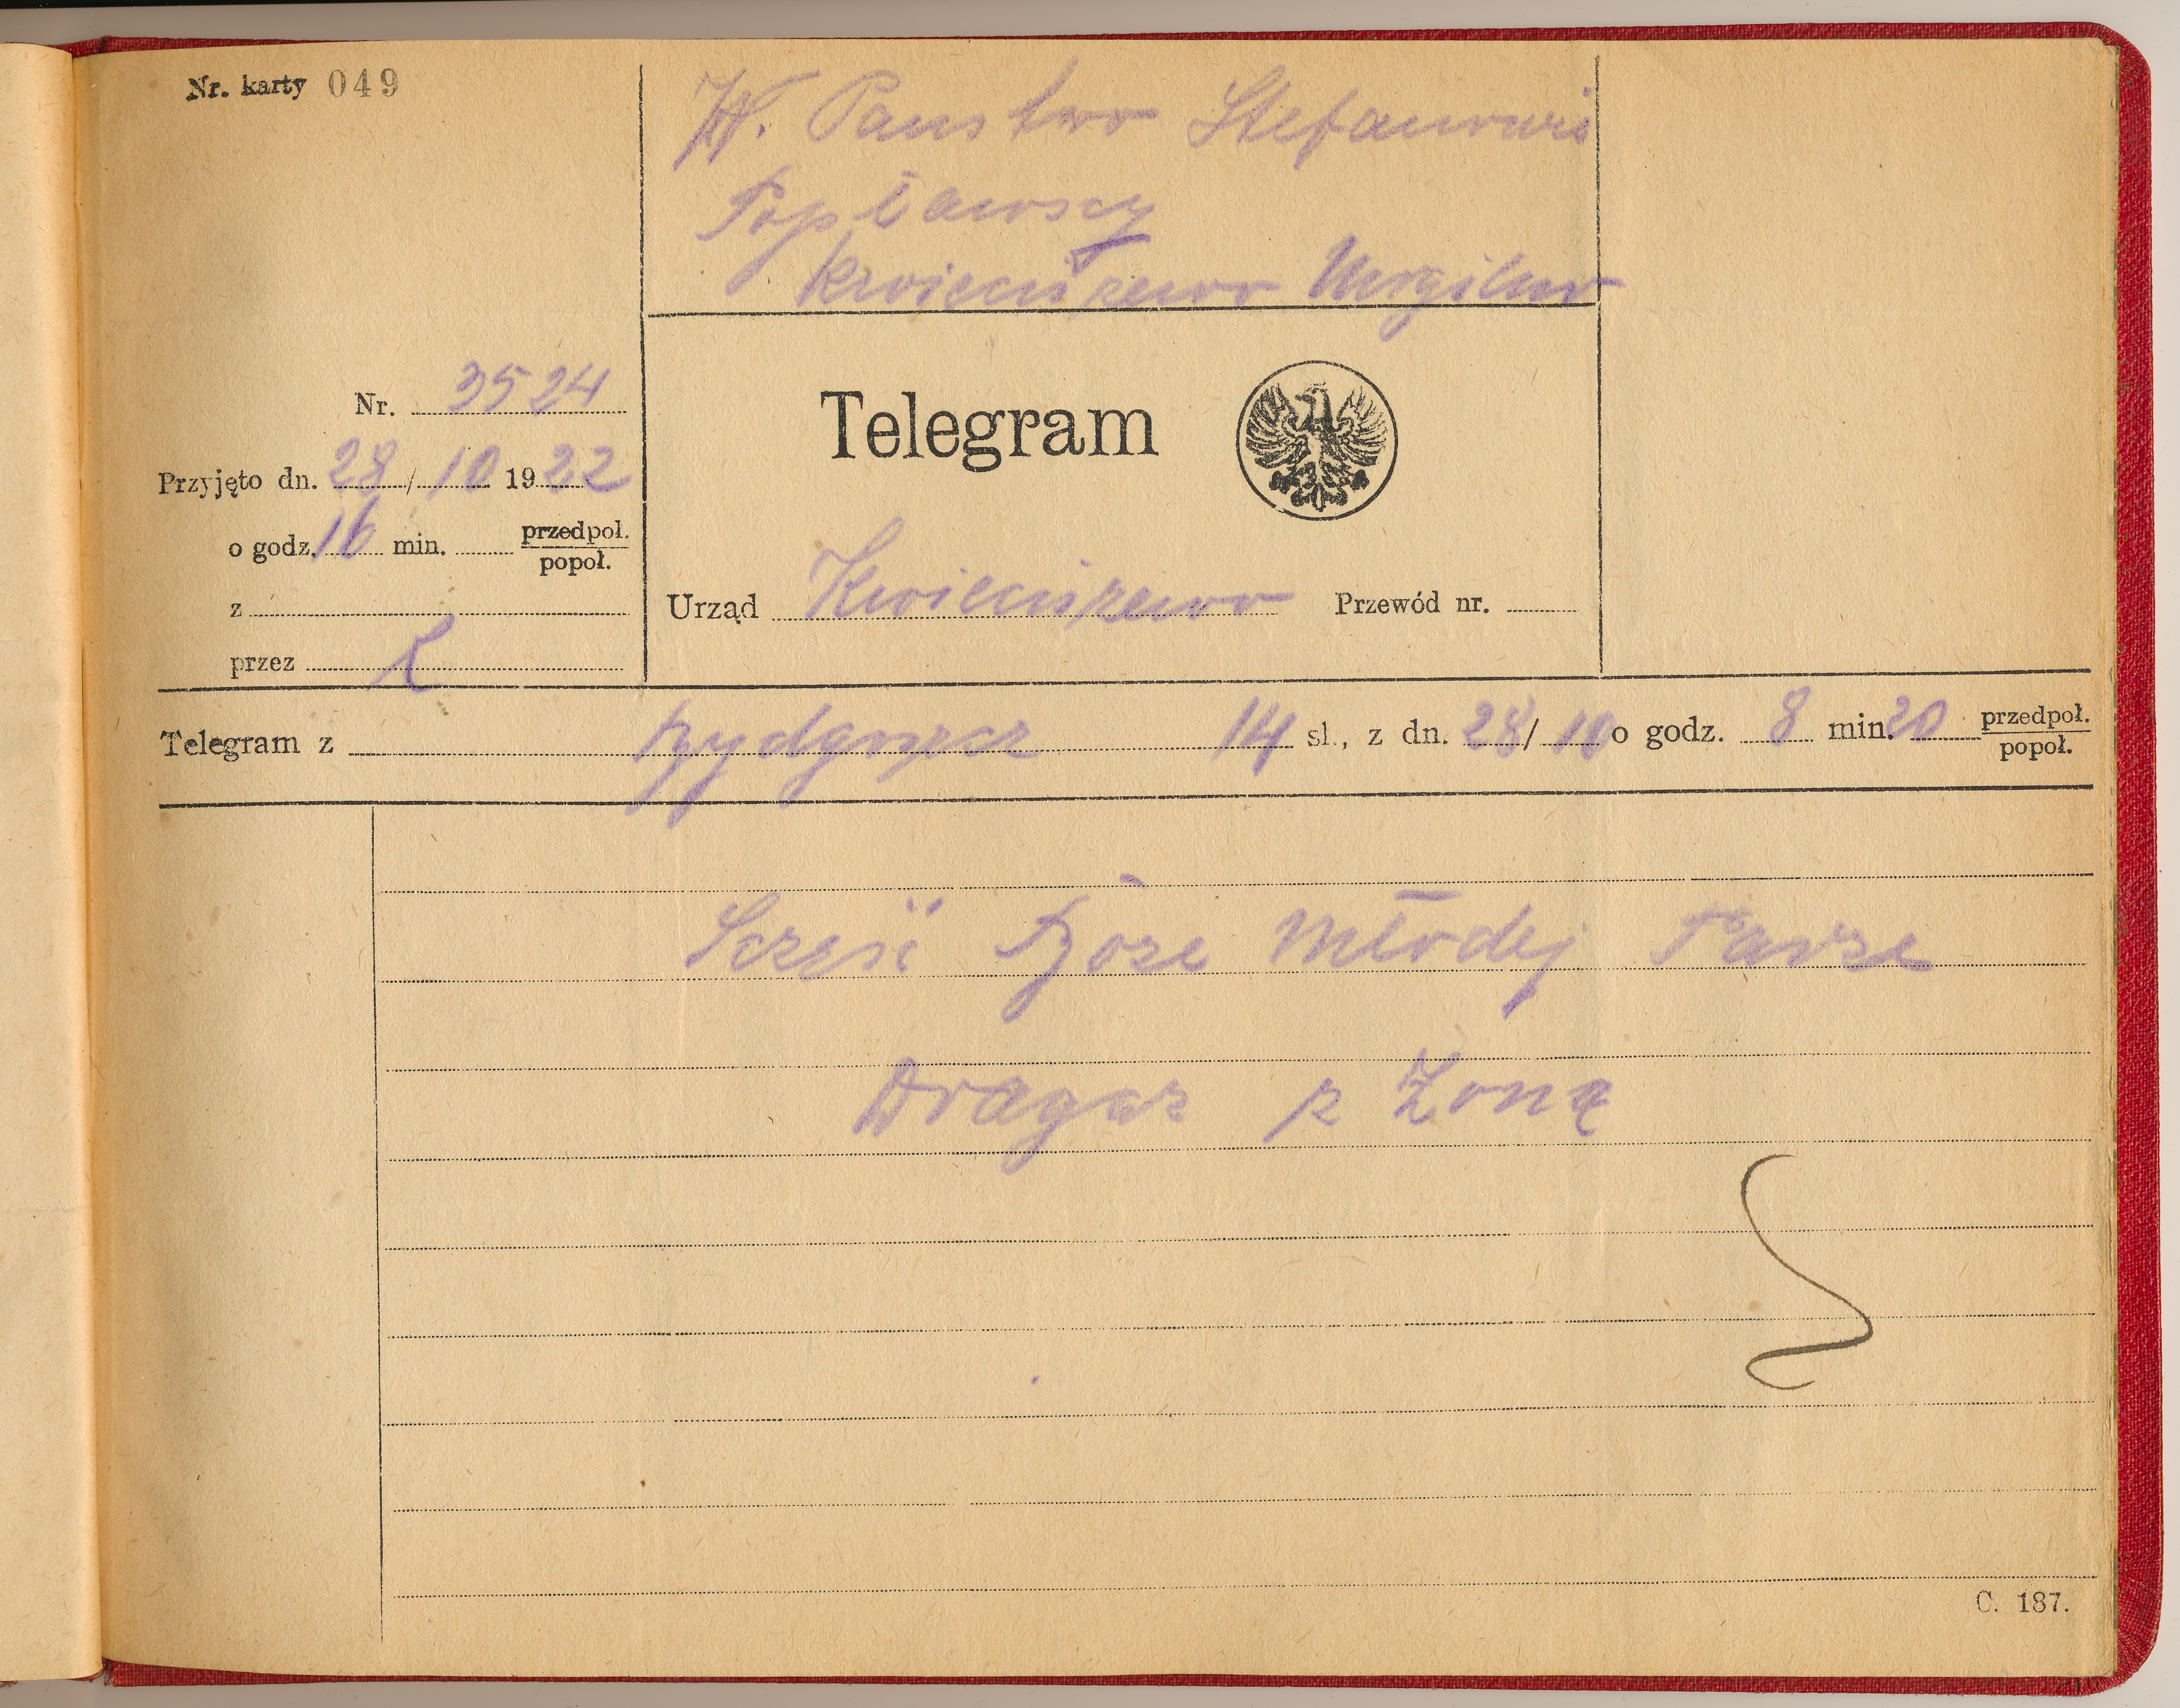 Nr. karty 049
W. Państwo Stefanowie
Popławscy
Kwieciszewo Mogilno
Nr. 3524
Telegram
Przyjęto dn. 28/10 1922
o godz. 16 min. przedpoł.
popoł.
z
Urząd Kwieciszewo Przewód nr.
przez
Telegram z Bydgoszcz 14 sl., z dn. 28/10 o godz. 8 min. 20 przedpoł.
popoł.
Sczęść Boże Młodej Parze
Dragas z Żoną
C. 187.